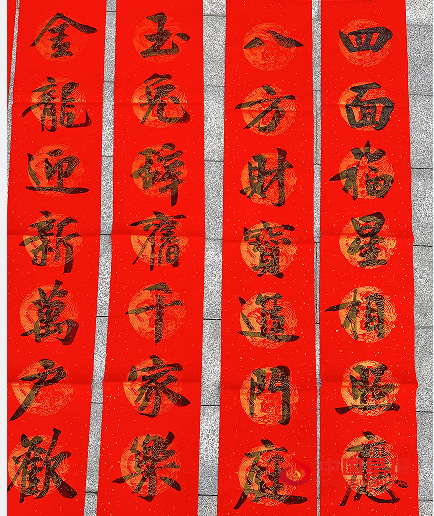 四面福星相照應
八方財寶進門庭
玉兔辭舊千家樂
金龍迎新萬戶歡